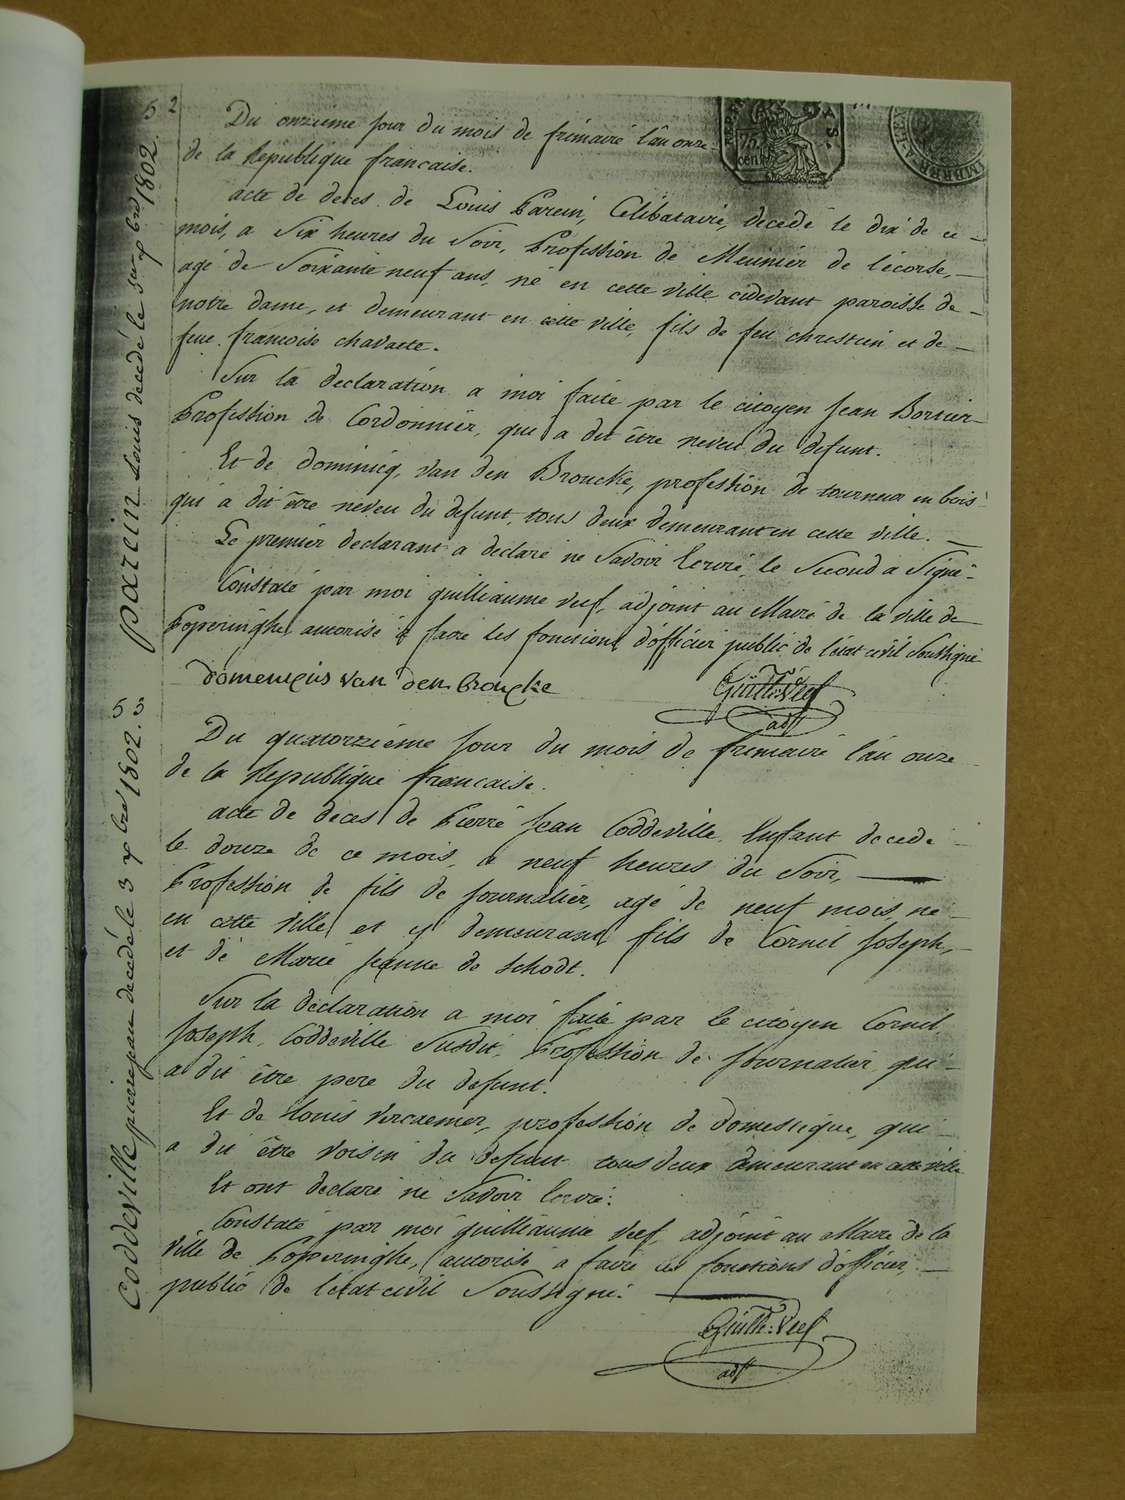 52
Du onzieme jour du mois de frimaire l'an onze
de la Republique francaise.
acte de deces de Louis Parein, Celibataire, decedé le dix de ce
mois, a Six heures du Soir, Profession de Meunier de l'ecorse,
agé de Soixante neuf ans, né en cette ville cidevant paroisse de
notre dame, et demeurant en cette ville, fils de feu chrestien et de
feue francoise chavaete.
Sur la declaration a moi faite par le citoyen Jean Bortier
Profession de Cordonnier, qui a dit être neveu du defunt.
Et de dominicq van den Broucke, profession de tourneur en bois
qui a dit être neveu du defunt, tous deux demeurant en cette ville.
Le premier declarant a declaré ne Savoir Ecrire, le Second a Signé
Constaté par moi guilliaume Veef, adjoint au Maire de la ville de
Poperinghe, autorisé a faire les fonctions d'officier public de l'etat civil Soussigné
domenicus van den broucke
Guilli: Veef
adjt
Du quatorzieme jour du mois de frimaire l'an onze
de la Republique francaise.
acte de deces de Pierre Jean Coddeville, Enfant decedé
le douze de ce mois, a neuf heures du Soir,
Profession de fils de Journalier, agé de neuf mois, né
en cette ville et y demeurant fils de Cornil Joseph,
et de Marie Jeanne de Schodt.
Sur la declaration a moi faite par le citoyen Cornil
Joseph Coddeville Susdit, Profession de Journalier, qui
a dit être pere du defunt.
Et de Louis Vercaemer, profession de domestique, qui
a dit être voisin du defunt tous deux demeurant en cette ville
Et ont declaré ne Savoir Ecrire.
Constaté par moi guilliaume Veef, adjoint au Maire de la
Ville de Poperinghe, autorisé a faire les fonctions d'officier
public de l'etat civil Soussigné.
Guilli: Veef
adjt
parein Louis decedé le 1802.
53
Coddeville pierre jean decedé le 3 xbre 1802.
75
cent